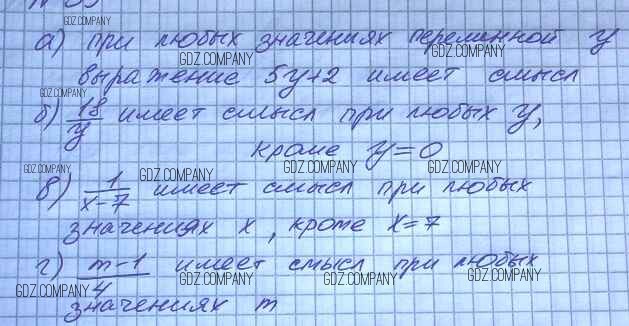 а) при любых значениях переменной y
GDZ.COMPANY
GDZ.COMPANY
GDZ.COMPANY
выражение 5y+2 имеет смысл
GDZ.COMPANY
б) 18/y имеет смысл при любых y,
кроме y=0
GDZ.COMPANY
GDZ.COMPANY
GDZ.COMPANY
GDZ.COMPANY
в) 1/(x-7) имеет смысл при любых
значениях x, кроме x=7
г) (m-1)/4 имеет смысл при любых
GDZ.COMPANY
GDZ.COMPANY
GDZ.COMPANY
GDZ.COMPANY
значениях m